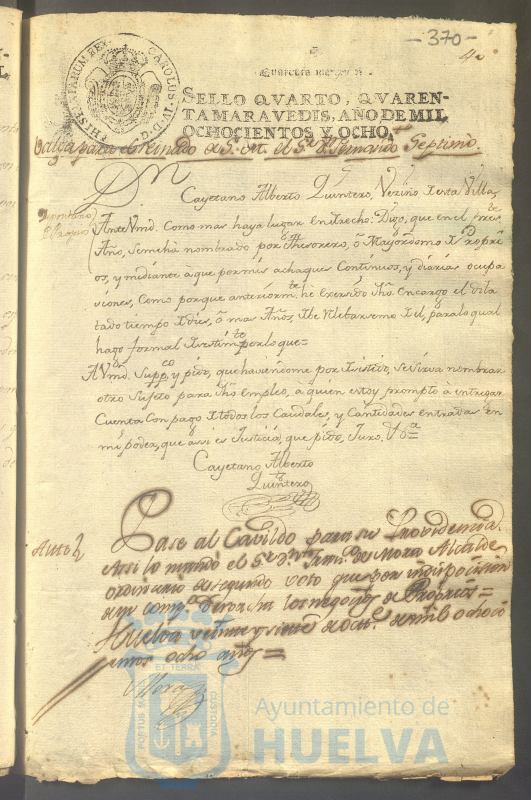 -370-
4
HISPANIARUM REX CAROLUS IV D G
SELLO QVARTO, QVAREN-
TAMARAVEDIS, AÑO DE MIL
OCHOCIENTOS Y OCHO.
Valga para el Reinado de S. M. el Sr. Dn. Fernando Septimo.
Dn Cayetano Alberto Quintero, Vezino de esta Villa,
Ante Vmd. Como mas haya lugar en drecho: Digo, que en el preste
Año, se me ha nombrado por Thesorero, ô Mayordomo de Propri
os, y mediante a que por mis achaques Contínuos, y diarias ocupa
siones, Como porque anteriormte. hè exersido dho. encargo el dila
tado tiempo de dies, ô mas Años, debe relebarseme de el, para lo qual
hago formal desistimto. por lo que=
A Vmd. Suppco. y pido, que haviendome por desistido, se sirva nombrar
otro Sujeto para dho. empleo, à quien estoy prompto à entregar
Cuenta Con pago de todos los Caudales, y Cantidades entradas en
mi poder, que assi es Justicia, que pido, Juro, Va.=
Cayetano Alberto
Quintero
Auto
Pase al Cavildo para su Providencia.
Assi lo mandó el Sr. Dn. de Mora Alcalde
ordinario de segundo voto que por indisposicion
de su comp. los negocios de Proprios=
Huelva veinte y siete de de mil ochoci
entos ocho años=
Mora
PORTUS MARIS ET TERRAE CUSTODIA
Ayuntamiento de
HUELVA